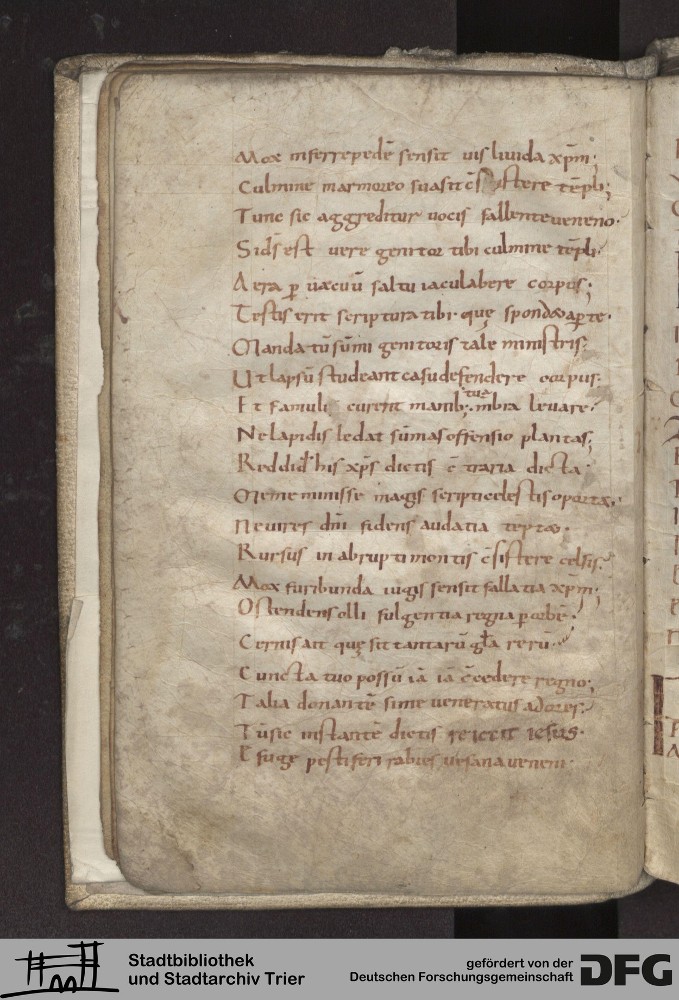 Mox inferrepedē sensit uis liuida xp̄m·
Culmine marmoreo suasit c̄sistere tēpli;
Tunc sic aggreditur uocis fallente ueneno·
Sid̄s est uere genitor tibi culmine tēpli·
Aera ꝑ uacuū saltu iaculabere corpus;
Testis erit scriptura tibi· quę spondet aperte·
Manda tū sūmi genitoris tale ministris;
Ut lapsū studeant casu defendere corpus;
tua
Et famuli curent manib; mb̄ra leuare·
Ne lapidis ledat sūmas offensio plantas;
Reddid̄ his xp̄s dictis c̄traria dicta·
Meminisse magis scripti celestis oportet·
Ne uires dn̄i fidens audatia tēptet·
Rursus in abrupti montis c̄sistere celsis;
Mox furibunda iugis sensit fallatia xp̄m;
Ostendens olli fulgentia regna ꝑ orbē·
Cernis ait quę sit tantarū gl̄a rerū·
Cuncta tuo possū iā iā c̄cedere regno;
Talia donantē si me ueneratus adores;
Tū sic instantē dictis reicit iesus·
Effuge pestiferi rabies uesana ueneni·
Stadtbibliothek
und Stadtarchiv Trier
gefördert von der
Deutschen Forschungsgemeinschaft
DFG